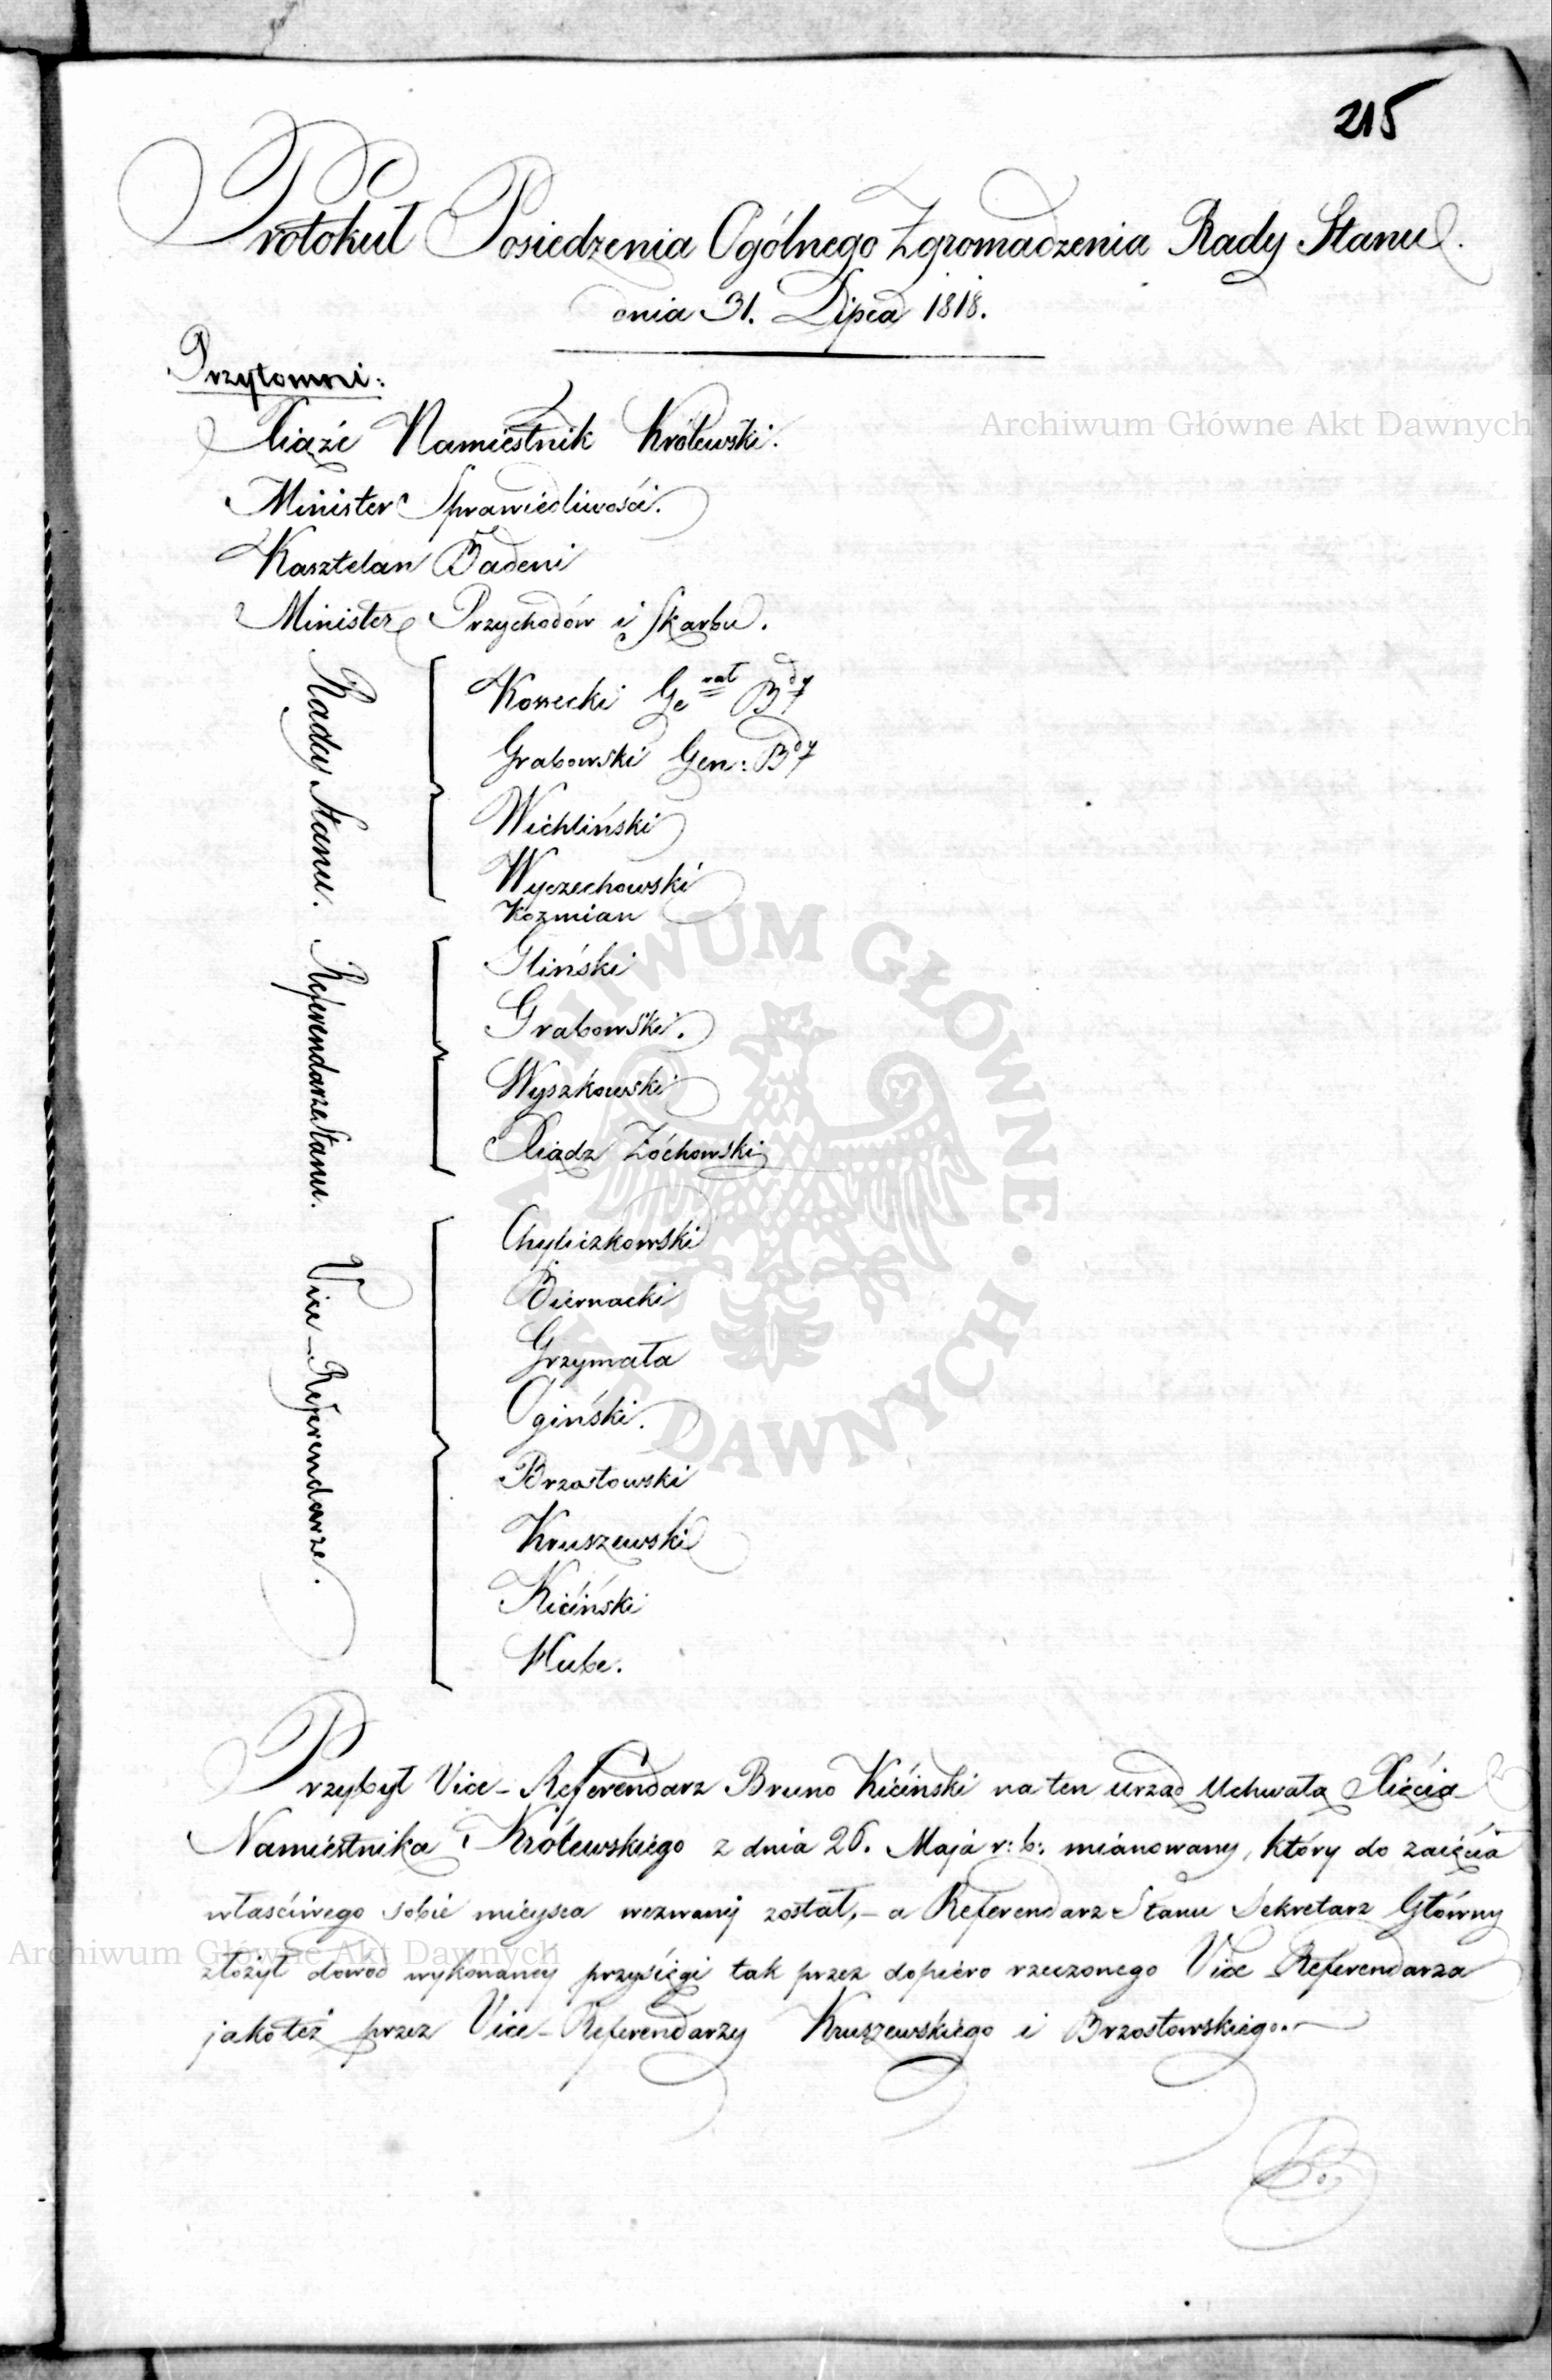 215
Protokuł Posiedzenia Ogólnego Zgromadzenia Rady Stanu.
dnia 31. Lipca 1818.
Przytomni:
Xiąże Namiestnik Królewski.
Minister Sprawiedliwości.
Kasztelan Badeni
Minister Przychodów i Skarbu.
Radcy Stanu.
Kossecki Ge ral Bdy
Grabowski Gen: Bdy
Wichliński
Wyczechowski
Kozmian
Referendarze Stanu.
Gliński
Grabowski.
Wyszkowski
Xiądz Zóchowski
Vice-Referendarze.
Chyliczkowski
Biernacki
Grzymała
Ogiński.
Brzostowski
Kruszewski
Kiciński
Hube.
Przybył Vice-Referendarz Bruno Kiciński na ten urząd Uchwałą Xięcia
Namiestnika Królewskiego z dnia 26. Maja r: b: mianowany, który do zaięcia
właściwego sobie mieysca wezwany został,- a Referendarz Stanu Sekretarz Główny
złożył dowód wykonaney przysięgi tak przez dopiero rzeczonego Vice-Referendarza
jakoteż przez Vice-Referendarzy Kruszewskiego i Brzostowskiego.
Archiwum Główne Akt Dawnych
Archiwum Główne Akt Dawnych
ARCHIWUM GŁÓWNE AKT DAWNYCH